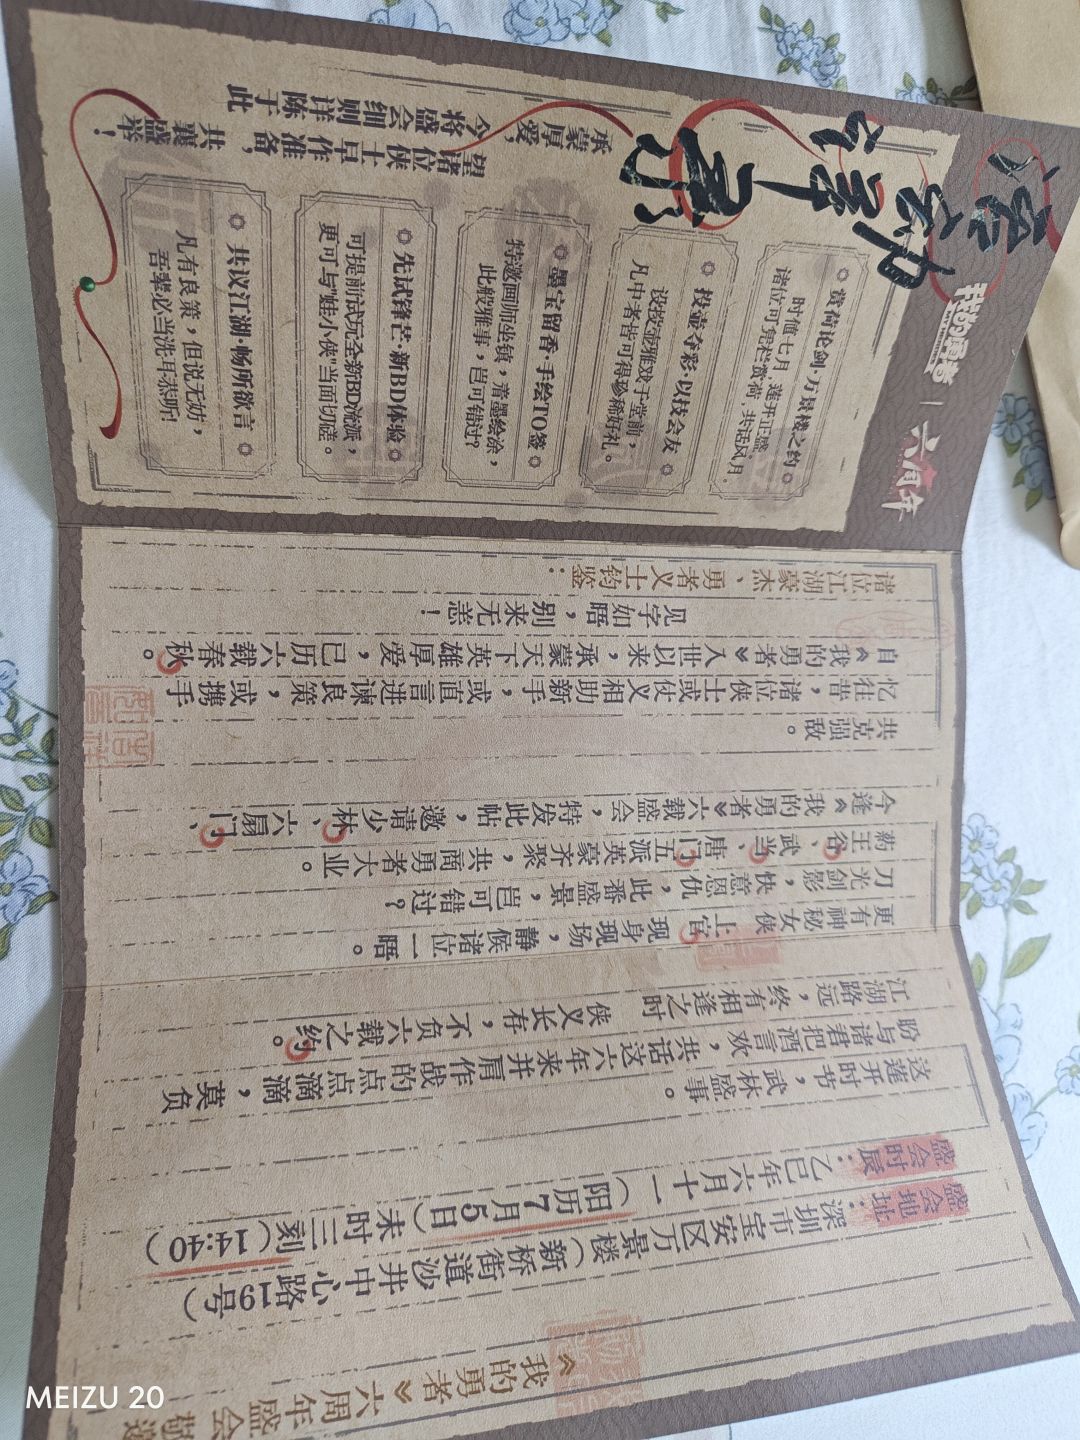 我的勇者 | 六周年
赏荷论剑·万景楼之约
时值七月，莲开正盛，
诸位可凭栏赏荷，共话风月。
投壶夺彩·以技会友
设投壶雅戏于堂前，
凡中者皆可得珍稀好礼。
墨宝留香·手绘TO签
特邀画师坐镇，着墨绘涂，
此般雅事，岂可错过？
先试锋芒·新BD体验
可提前试玩全新BD流派，
更可与蛙小侠当面切磋。
共议江湖·畅所欲言
凡有良策，但说无妨，
吾辈必当洗耳恭听！
承蒙厚爱，
今将盛会细则详陈于此
望诸位侠士早作准备，
共襄盛举！
诸位江湖豪杰、勇者义士钧鉴：
见字如晤，别来无恙！
自《我的勇者》入世以来，承蒙天下英雄厚爱，已历六载春秋。
忆往昔，诸位侠士或仗义相助新手，或直言进谏良策，或携手
共克强敌。
今逢《我的勇者》六载盛会，特发此帖，邀请少林、六扇门、
药王谷、武当、唐门五派英豪齐聚，共商勇者大业。
刀光剑影，快意恩仇，此番盛景，岂可错过？
更有神秘女侠上官现身现场，静候诸位一晤。
江湖路远，终有相逢之时
侠义长存，不负六载之约。
盼与诸君把酒言欢，共话这六年来并肩作战的点点滴滴，莫负
这莲开时节，武林盛事。
盛会时辰：乙巳年六月十一（阳历7月5日）未时三刻（14:40）
盛会地址：深圳市宝安区万景楼（新桥街道沙井中心路19号）
《我的勇者》六周年盛会 敬邀
MEIZU 20